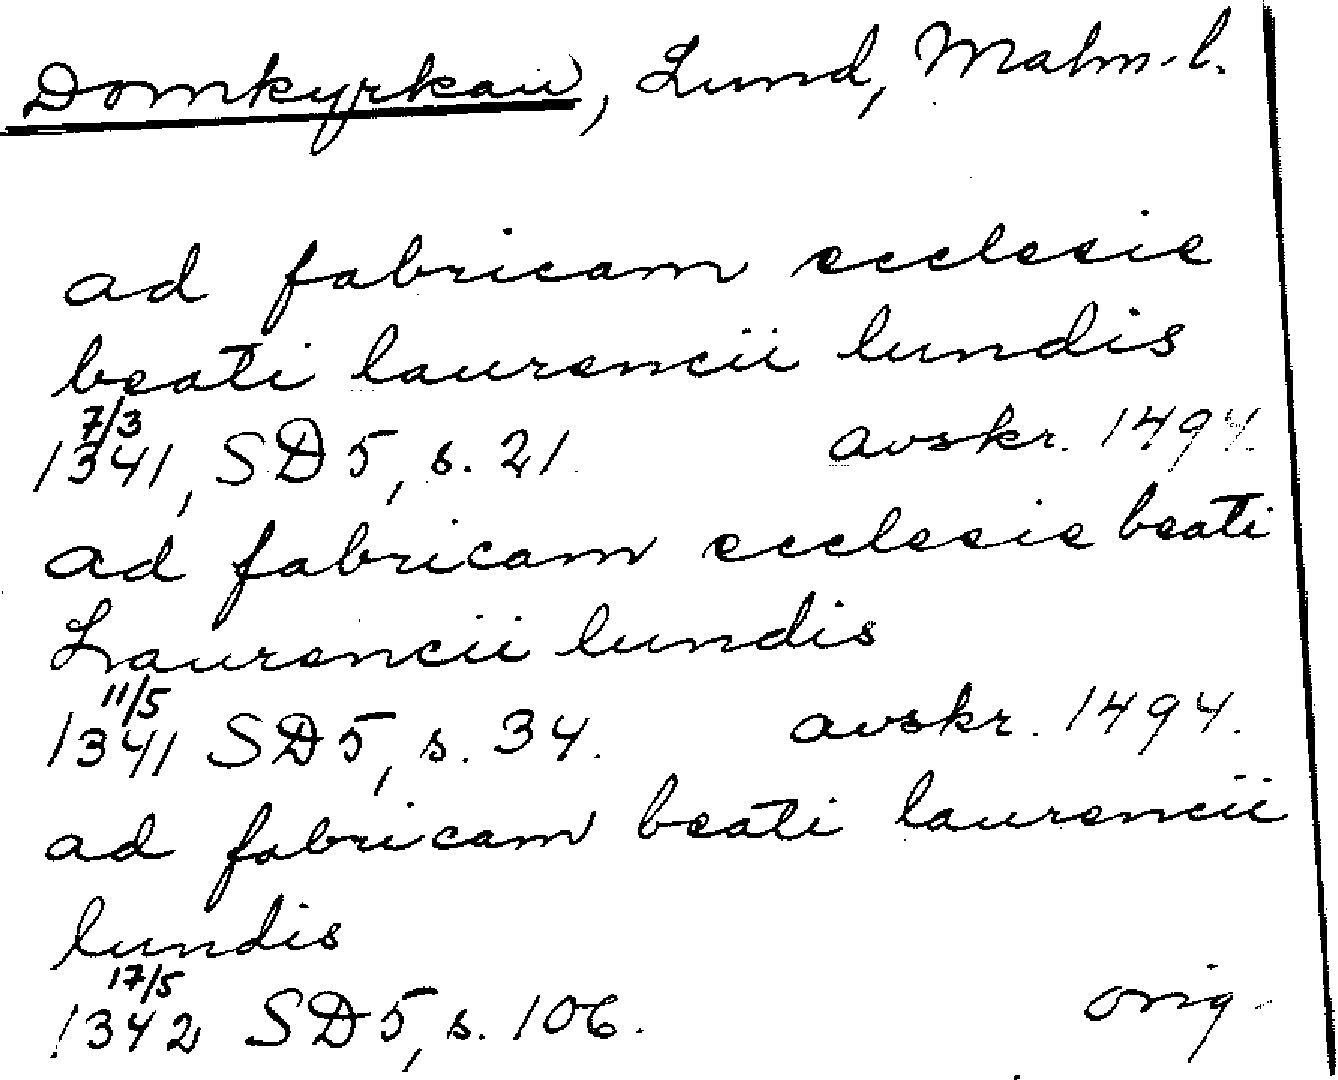 Domkyrkan, Lund, Malm. l.
ad fabricam ecclesie
beati laurencii lundis
7/3
1341, SD 5, s. 21. avskr. 1494.
ad fabricam ecclesie beati
Laurencii lundis
11/5
1341 SD 5, s. 34. avskr. 1494.
ad fabricam beati laurencii
lundis
17/5
1342 SD 5, s. 106. orig.